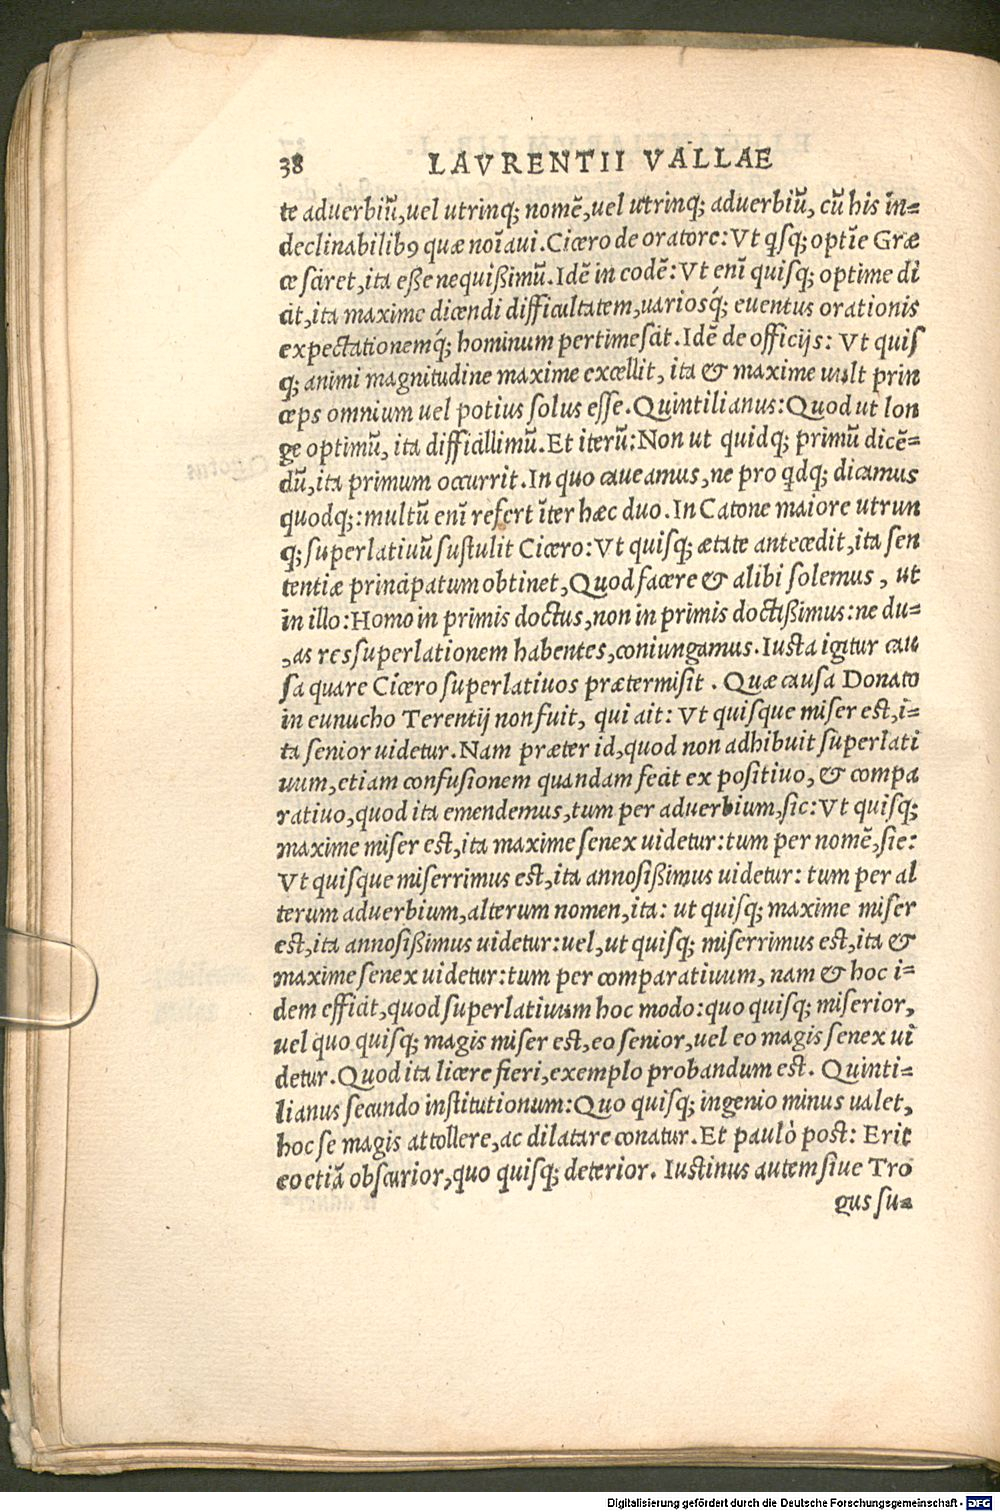 38 LAVRENTII VALLAE
te aduerbiũ, uel utrinq; nomẽ, uel utrinq; aduerbiũ, cũ his in-
declinabilib9 quæ noĩaui. Cicero de oratore: Vt qsq; optĩe Græ
ce sciret, ita eße nequißimũ. Idẽ in eodẽ: Vt enĩ quisq; optime di
cit, ita maxime dicendi difficultatem, uariosq́; euentus orationis
expectationemq́; hominum pertimescit. Idẽ de officijs: Vt quis
q; animi magnitudine maxime excellit, ita & maxime uult prin
ceps omnium uel potius solus esse. Quintilianus: Quod ut lon
ge optimũ, ita difficillimũ. Et iterũ: Non ut quidq; primũ dicẽ-
dũ, ita primum occurrit. In quo caueamus, ne pro qdq; dicamus
quodq;: multũ enĩ refert ĩter hæc duo. In Catone maiore utrun
q; superlatiuũ sustulit Cicero: Vt quisq; ætate antecedit, ita sen
tentiæ principatum obtinet, Quod facere & alibi solemus, ut
in illo: Homo in primis doctus, non in primis doctißimus: ne du-
as res superlationem habentes, coniungamus. Iusta igitur cau
sa quare Cicero superlatiuos prætermisit. Quæ causa Donato
in eunucho Terentij non fuit, qui ait: Vt quisque miser est, i-
ta senior uidetur. Nam præter id, quod non adhibuit superlati
uum, etiam confusionem quandam fecit ex positiuo, & compa
ratiuo, quod ita emendemus, tum per aduerbium, sic: Vt quisq;
maxime miser est, ita maxime senex uidetur: tum per nomẽ, sic:
Vt quisque miserrimus est, ita annosißimus uidetur: tum per al
terum aduerbium, alterum nomen, ita: ut quisq; maxime miser
est, ita annosißimus uidetur: uel, ut quisq; miserrimus est, ita &
maxime senex uidetur: tum per comparatiuum, nam & hoc i-
dem efficit, quod superlatiuum hoc modo: quo quisq; miserior,
uel quo quisq; magis miser est, eo senior, uel eo magis senex ui
detur. Quod ita licere fieri, exemplo probandum est. Quinti-
lianus secundo institutionum: Quo quisq; ingenio minus ualet,
hoc se magis attollere, ac dilatare conatur. Et paulò post: Erit
eo etiã obscurior, quo quisq; deterior. Iustinus autem siue Tro
gus su-
Digitalisierung gefördert durch die Deutsche Forschungsgemeinschaft - DFG